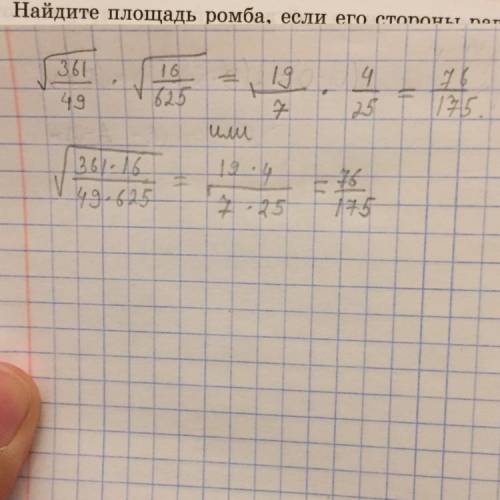 Найдите площадь ромба, если его стороны
√(361/49) · √(16/625) = 19/7 · 4/25 = 76/175.
или
√((361·16)/(49·625)) = (19·4)/(7·25) = 76/175